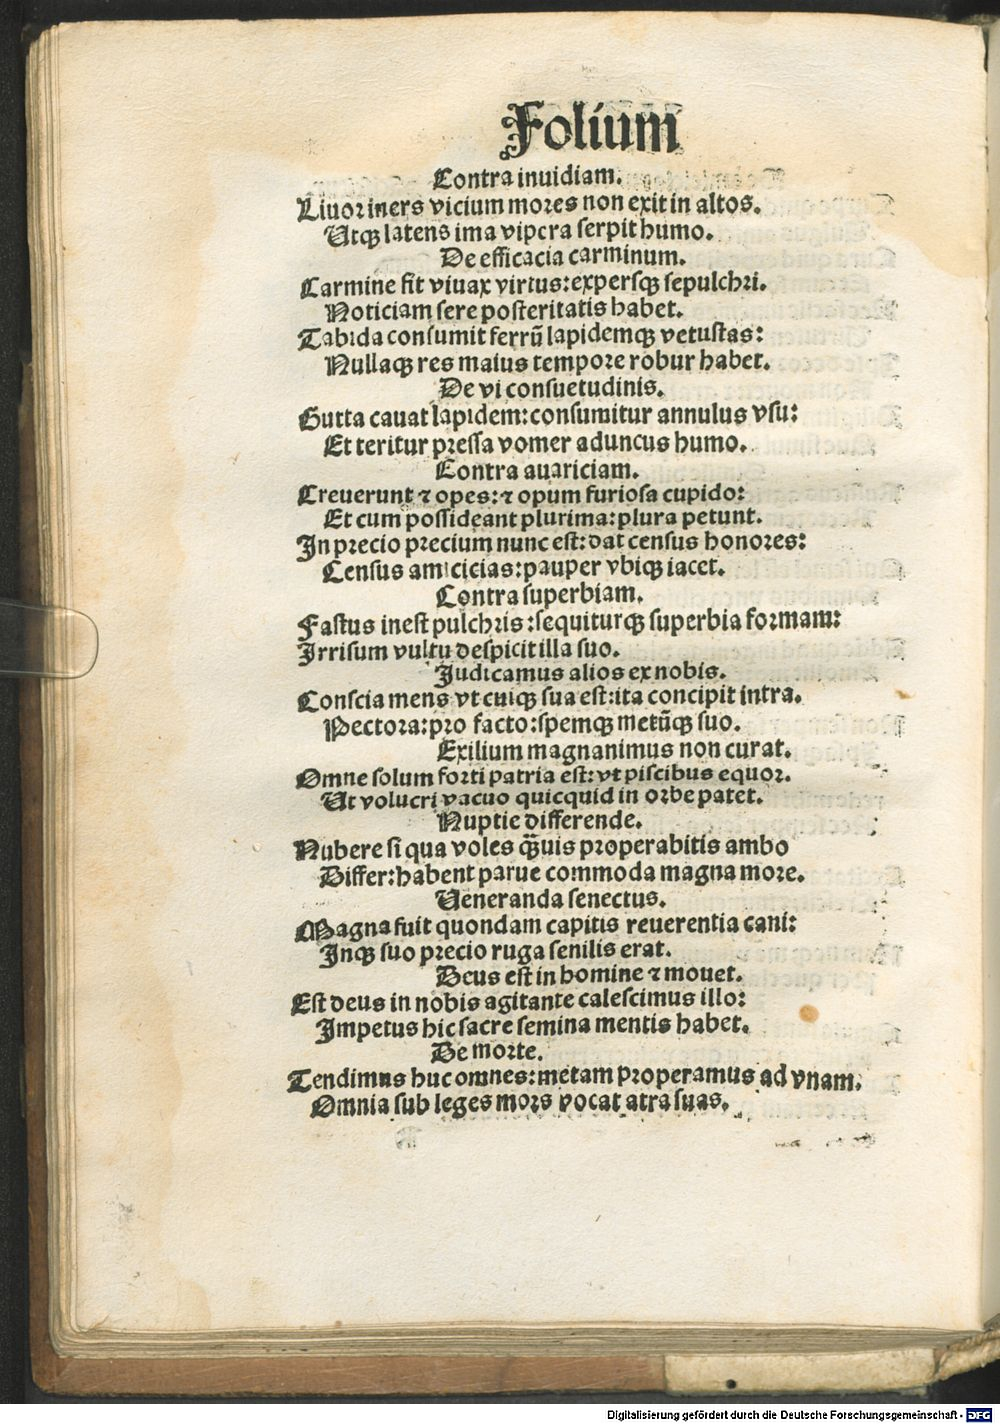 Folium
Contra inuidiam.
Liuor iners vicium mores non exit in altos.
Utqꝫ latens ima vipera serpit humo.
De efficacia carminum.
Carmine fit viuax virtus: expersqꝫ sepulchri.
Noticiam sere posteritatis habet.
Tabida consumit ferrũ lapidemqꝫ vetustas:
Nullaqꝫ res maius tempore robur habet.
De vi consuetudinis.
Gutta cauat lapidem: consumitur annulus vsu:
Et teritur pressa vomer aduncus humo.
Contra auariciam.
Creuerunt ⁊ opes: ⁊ opum furiosa cupido:
Et cum possideant plurima: plura petunt.
In precio precium nunc est: dat census honores:
Census amicicias: pauper vbiqꝫ iacet.
Contra superbiam.
Fastus inest pulchris: sequiturqꝫ superbia formam:
Irrisum vultu despicit illa suo.
Judicamus alios ex nobis.
Conscia mens vt cuiqꝫ sua est: ita concipit intra.
Pectora: pro facto: spemqꝫ metũqꝫ suo.
Exilium magnanimus non curat.
Omne solum forti patria est: vt piscibus equor.
Ut volucri vacuo quicquid in orbe patet.
Nuptie differende.
Nubere si qua voles q̃uis properabitis ambo
Differ: habent parue commoda magna more.
Ueneranda senectus.
Magna fuit quondam capitis reuerentia cani:
Inqꝫ suo precio ruga senilis erat.
Deus est in homine ⁊ mouet.
Est deus in nobis agitante calescimus illo:
Impetus hic sacre semina mentis habet.
De morte.
Tendimus huc omnes: metam properamus ad vnam.
Omnia sub leges mors vocat atra suas.
Digitalisierung gefördert durch die Deutsche Forschungsgemeinschaft - DFG